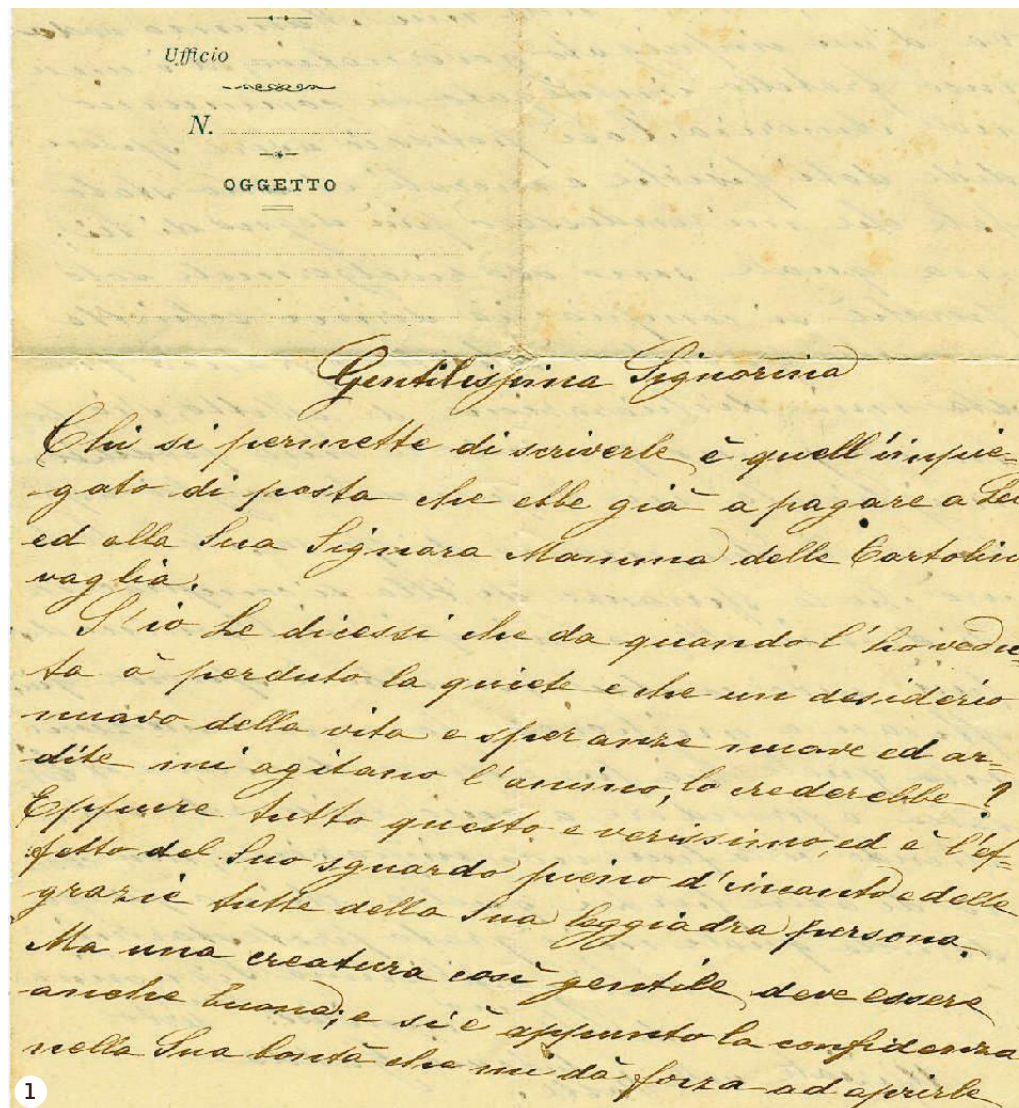 Ufficio
N.
OGGETTO
Gentilissima Signorina
Chi si permette di scriverle è quell'impie-
gato di posta che ebbe già a pagare a Lei
ed alla Sua Signora Mamma delle Cartolin
vaglia.
S'io Le dicessi che da quando l'ho vedu-
ta ò perduto la quiete e che un desiderio
nuovo della vita e speranze nuove ed ar-
dite mi agitano l'animo, lo crederebbe?
Eppure tutto questo è verissimo, ed è l'ef-
fetto del Suo sguardo pieno d'incanto e delle
grazie tutte della Sua leggiadra persona.
Ma una creatura così gentile, deve essere
anche buona; e si è appunto la confidenza
nella Sua bontà che mi dà forza ad aprirle
1